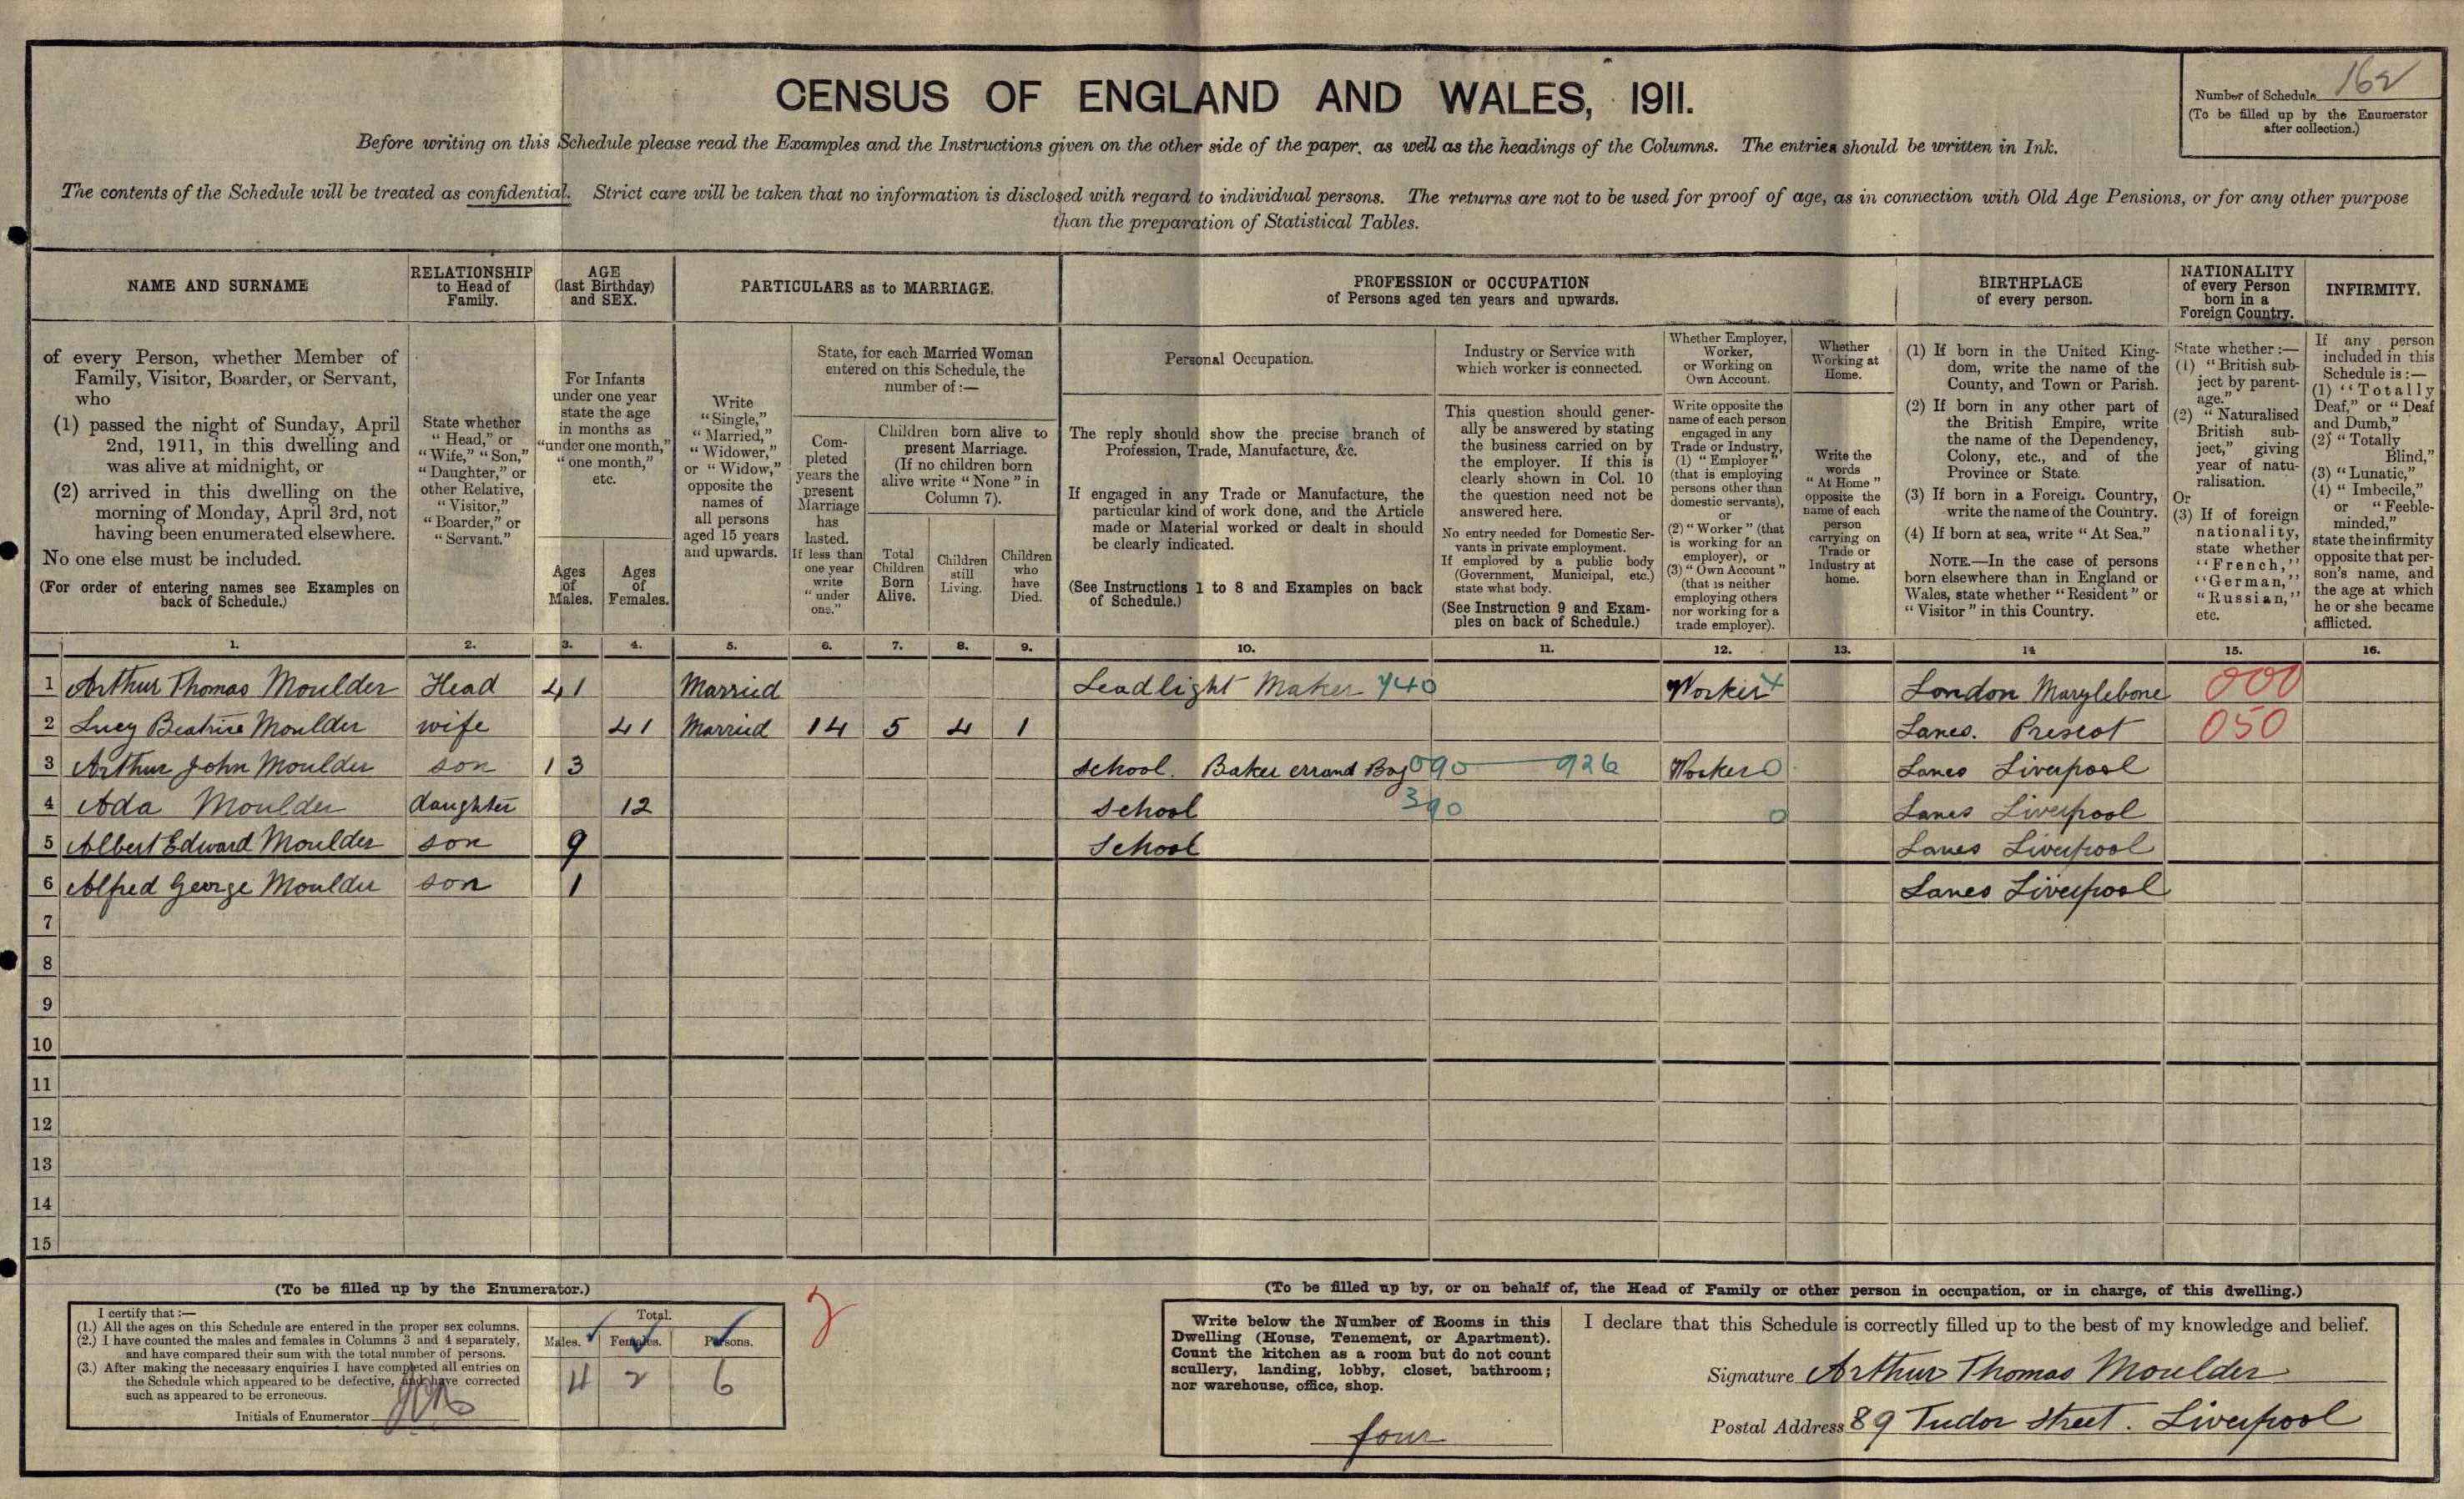 CENSUS OF ENGLAND AND WALES, 1911.
Number of Schedule 162
(To be filled up by the Enumerator
after collection.)
Before writing on this Schedule please read the Examples and the Instructions given on the other side of the paper, as well as the headings of the Columns. The entries should be written in Ink.
The contents of the Schedule will be treated as confidential. Strict care will be taken that no information is disclosed with regard to individual persons. The returns are not to be used for proof of age, as in connection with Old Age Pensions, or for any other purpose
than the preparation of Statistical Tables.
NAME AND SURNAME
of every Person, whether Member of
Family, Visitor, Boarder, or Servant,
who
(1) passed the night of Sunday, April
2nd, 1911, in this dwelling and
was alive at midnight, or
(2) arrived in this dwelling on the
morning of Monday, April 3rd, not
having been enumerated elsewhere.
No one else must be included.
(For order of entering names see Examples on
back of Schedule.)
RELATIONSHIP
to Head of
Family.
State whether
"Head," or
"Wife," "Son,"
"Daughter," or
other Relative,
"Visitor,"
"Boarder," or
"Servant."
AGE
(last Birthday)
and SEX.
For Infants
under one year
state the age
in months as
"under one month,"
"one month,"
etc.
Ages
of
Males.
Ages
of
Females.
PARTICULARS as to MARRIAGE.
Write
"Single,"
"Married,"
"Widower,"
or "Widow,"
opposite the
names of
all persons
aged 15 years
and upwards.
State, for each Married Woman
entered on this Schedule, the
number of :—
Com-
pleted
years the
present
Marriage
has
lasted.
If less than
one year
write
"under
one."
Children born alive to
present Marriage.
(If no children born
alive write "None" in
Column 7).
Total
Children
Born
Alive.
Children
still
Living.
Children
who
have
Died.
PROFESSION or OCCUPATION
of Persons aged ten years and upwards.
Personal Occupation.
The reply should show the precise branch of
Profession, Trade, Manufacture, &c.
If engaged in any Trade or Manufacture, the
particular kind of work done, and the Article
made or Material worked or dealt in should
be clearly indicated.
(See Instructions 1 to 8 and Examples on back
of Schedule.)
Industry or Service with
which worker is connected.
This question should gener-
ally be answered by stating
the business carried on by
the employer. If this is
clearly shown in Col. 10
the question need not be
answered here.
No entry needed for Domestic Ser-
vants in private employment.
If employed by a public body
(Government, Municipal, etc.)
state what body.
(See Instruction 9 and Exam-
ples on back of Schedule.)
Whether Employer,
Worker,
or Working on
Own Account.
Write opposite the
name of each person
engaged in any
Trade or Industry,
(1) "Employer"
(that is employing
persons other than
domestic servants),
or
(2) "Worker" (that
is working for an
employer), or
(3) "Own Account"
(that is neither
employing others
nor working for a
trade employer).
Whether
Working at
Home.
Write the
words
"At Home"
opposite the
name of each
person
carrying on
Trade or
Industry at
home.
BIRTHPLACE
of every person.
(1) If born in the United King-
dom, write the name of the
County, and Town or Parish.
(2) If born in any other part of
the British Empire, write
the name of the Dependency,
Colony, etc., and of the
Province or State.
(3) If born in a Foreign Country,
write the name of the Country.
(4) If born at sea, write "At Sea."
NOTE.—In the case of persons
born elsewhere than in England or
Wales, state whether "Resident" or
"Visitor" in this Country.
NATIONALITY
of every Person
born in a
Foreign Country.
State whether :—
(1) "British sub-
ject by parent-
age."
(2) "Naturalised
British sub-
ject," giving
year of natu-
ralisation.
Or
(3) If of foreign
nationality,
state whether
"French,"
"German,"
"Russian,"
etc.
INFIRMITY.
If any person
included in this
Schedule is :—
(1) "Totally
Deaf," or "Deaf
and Dumb,"
(2) "Totally
Blind,"
(3) "Lunatic,"
(4) "Imbecile,"
or "Feeble-
minded,"
state the infirmity
opposite that per-
son's name, and
the age at which
he or she became
afflicted.
1. 2. 3. 4. 5. 6. 7. 8. 9. 10. 11. 12. 13. 14 15. 16.
1 Arthur Thomas Moulder Head 41 Married Leadlight Maker 740 Worker x London Marylebone 000
2 Lucy Beatrice Moulder wife 41 Married 14 5 4 1 Lancs. Prescot 050
3 Arthur John Moulder son 13 School. Baker errand Boy 090 926 Worker 0 Lancs Liverpool
4 Ada Moulder daughter 12 School 390 0 Lancs Liverpool
5 Albert Edward Moulder son 9 School Lancs Liverpool
6 Alfred George Moulder son 1 Lancs Liverpool
7
8
9
10
11
12
13
14
15
(To be filled up by the Enumerator.)
I certify that :—
(1.) All the ages on this Schedule are entered in the proper sex columns.
(2.) I have counted the males and females in Columns 3 and 4 separately,
and have compared their sum with the total number of persons.
(3.) After making the necessary enquiries I have completed all entries on
the Schedule which appeared to be defective, and have corrected
such as appeared to be erroneous.
Initials of Enumerator
Total.
Males. Females. Persons.
4 2 6
(To be filled up by, or on behalf of, the Head of Family or other person in occupation, or in charge, of this dwelling.)
Write below the Number of Rooms in this
Dwelling (House, Tenement, or Apartment).
Count the kitchen as a room but do not count
scullery, landing, lobby, closet, bathroom;
nor warehouse, office, shop.
four
I declare that this Schedule is correctly filled up to the best of my knowledge and belief.
Signature Arthur Thomas Moulder
Postal Address 89 Tudor Street. Liverpool